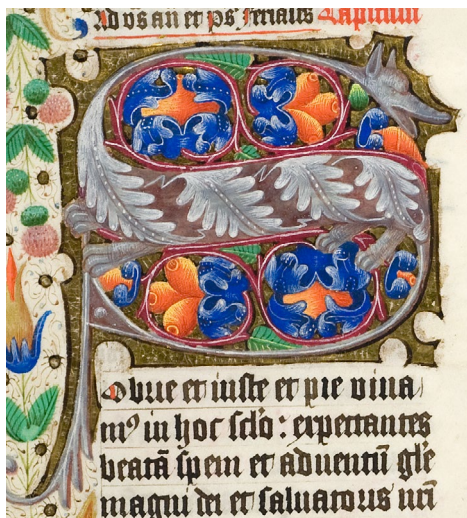 Ad vs an et ps feriales Capitulum
Sobrie et iuste et pie viua
mꝰ in hoc sclō : expectantes
beatā spem et aduentū glē
magni dei et saluatoris nrī